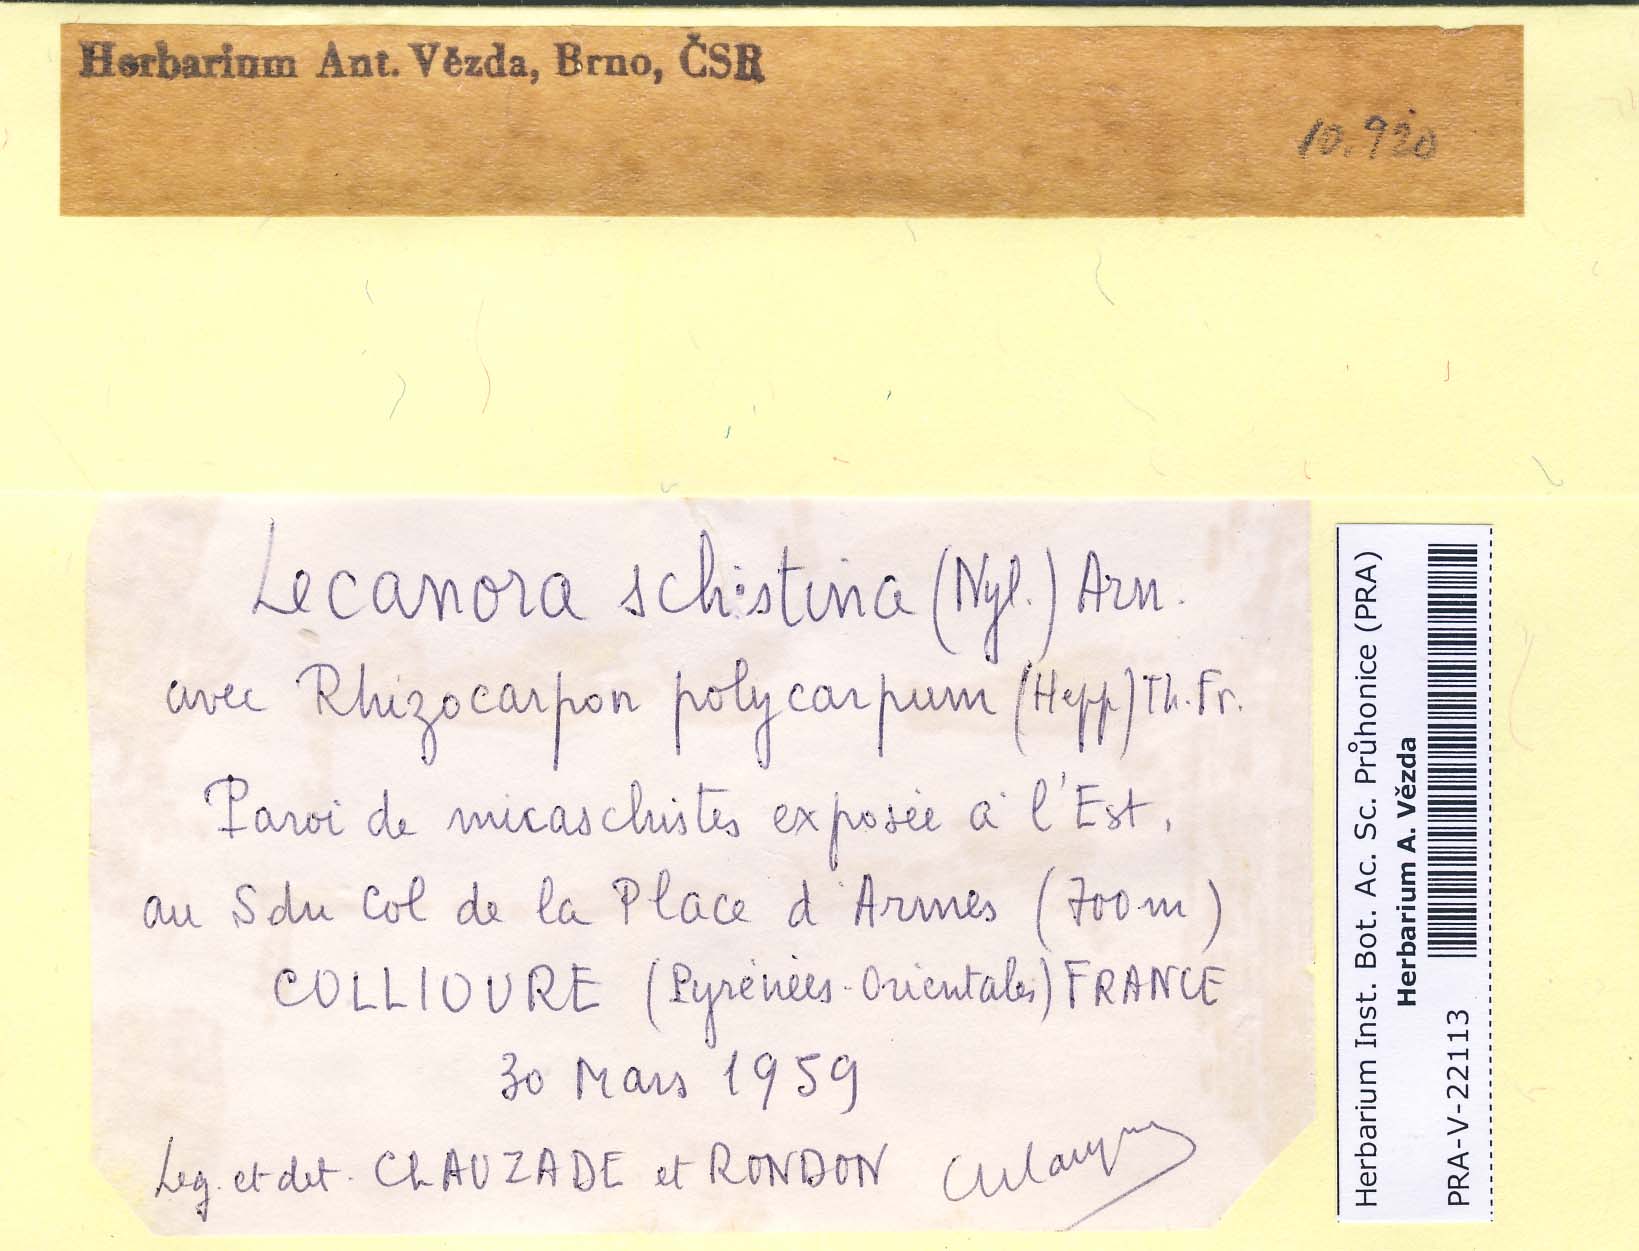 Herbarium Ant. Vězda, Brno, ČSR
10.920
Lecanora schistina (Nyl.) Arn.
avec Rhizocarpon polycarpum (Hepp) Th. Fr.
Paroi de micaschistes exposée à l'Est,
au S du Col de la Place d'Armes (700 m)
COLLIOURE (Pyrénées-Orientales) FRANCE
30 Mars 1959
Leg. et det. CLAUZADE et RONDON
Herbarium Inst. Bot. Ac. Sc. Průhonice (PRA)
Herbarium A. Vězda
PRA-V-22113